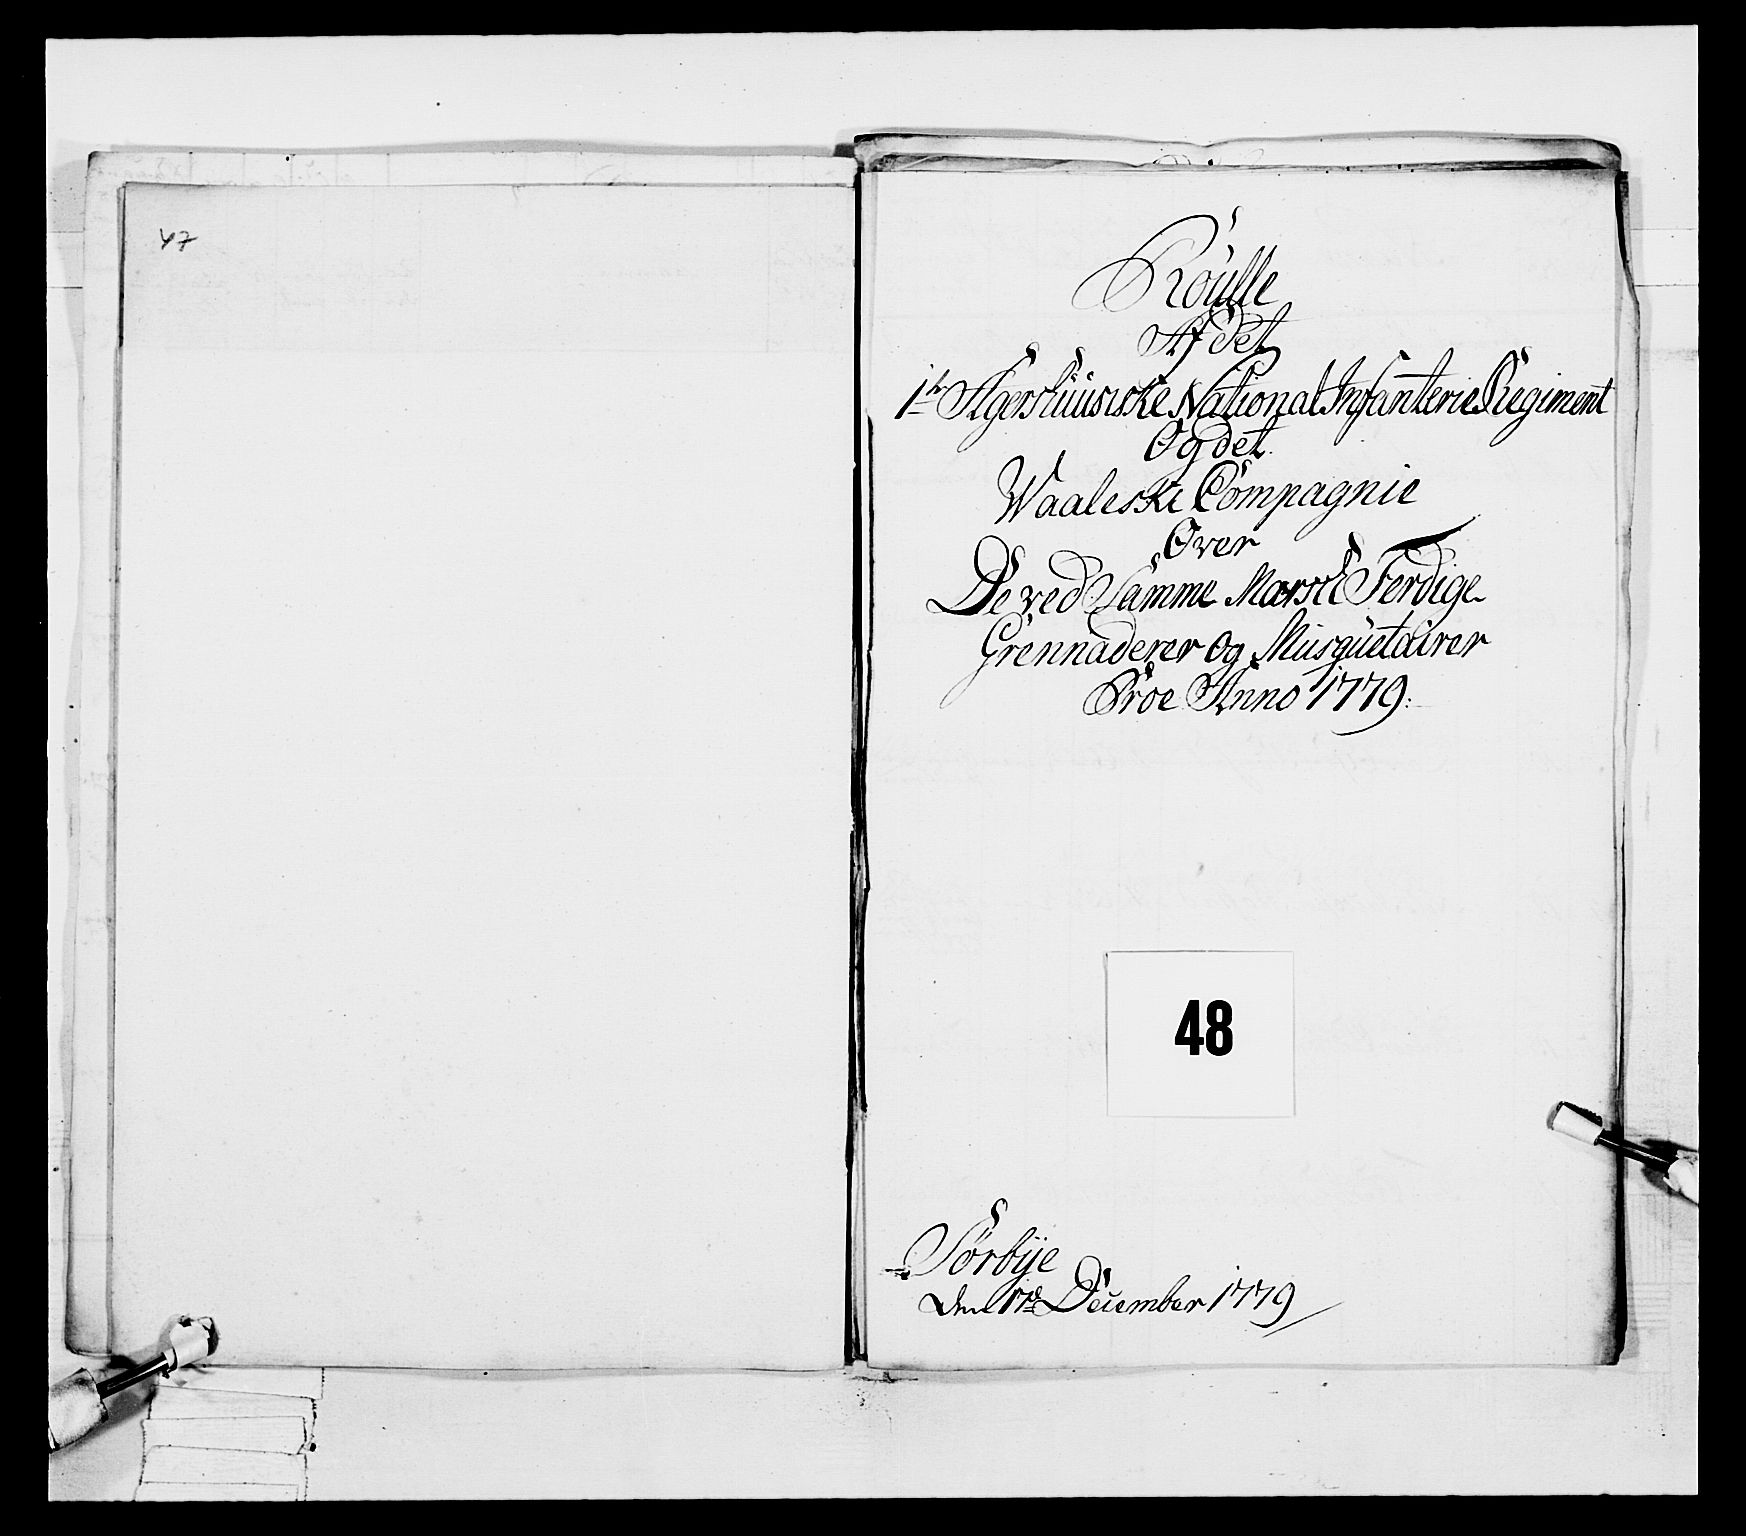 47
Roulle
Af Det
1ste Agerhuusiske National Infanterie Regiment
Og det
Waaleske Compagnie
Over
De ved Samme Marsch Ferdige
Grennaderer Og Musquetairer
Proe Anno 1779:
48
Sørbÿe
den 17de December 1779